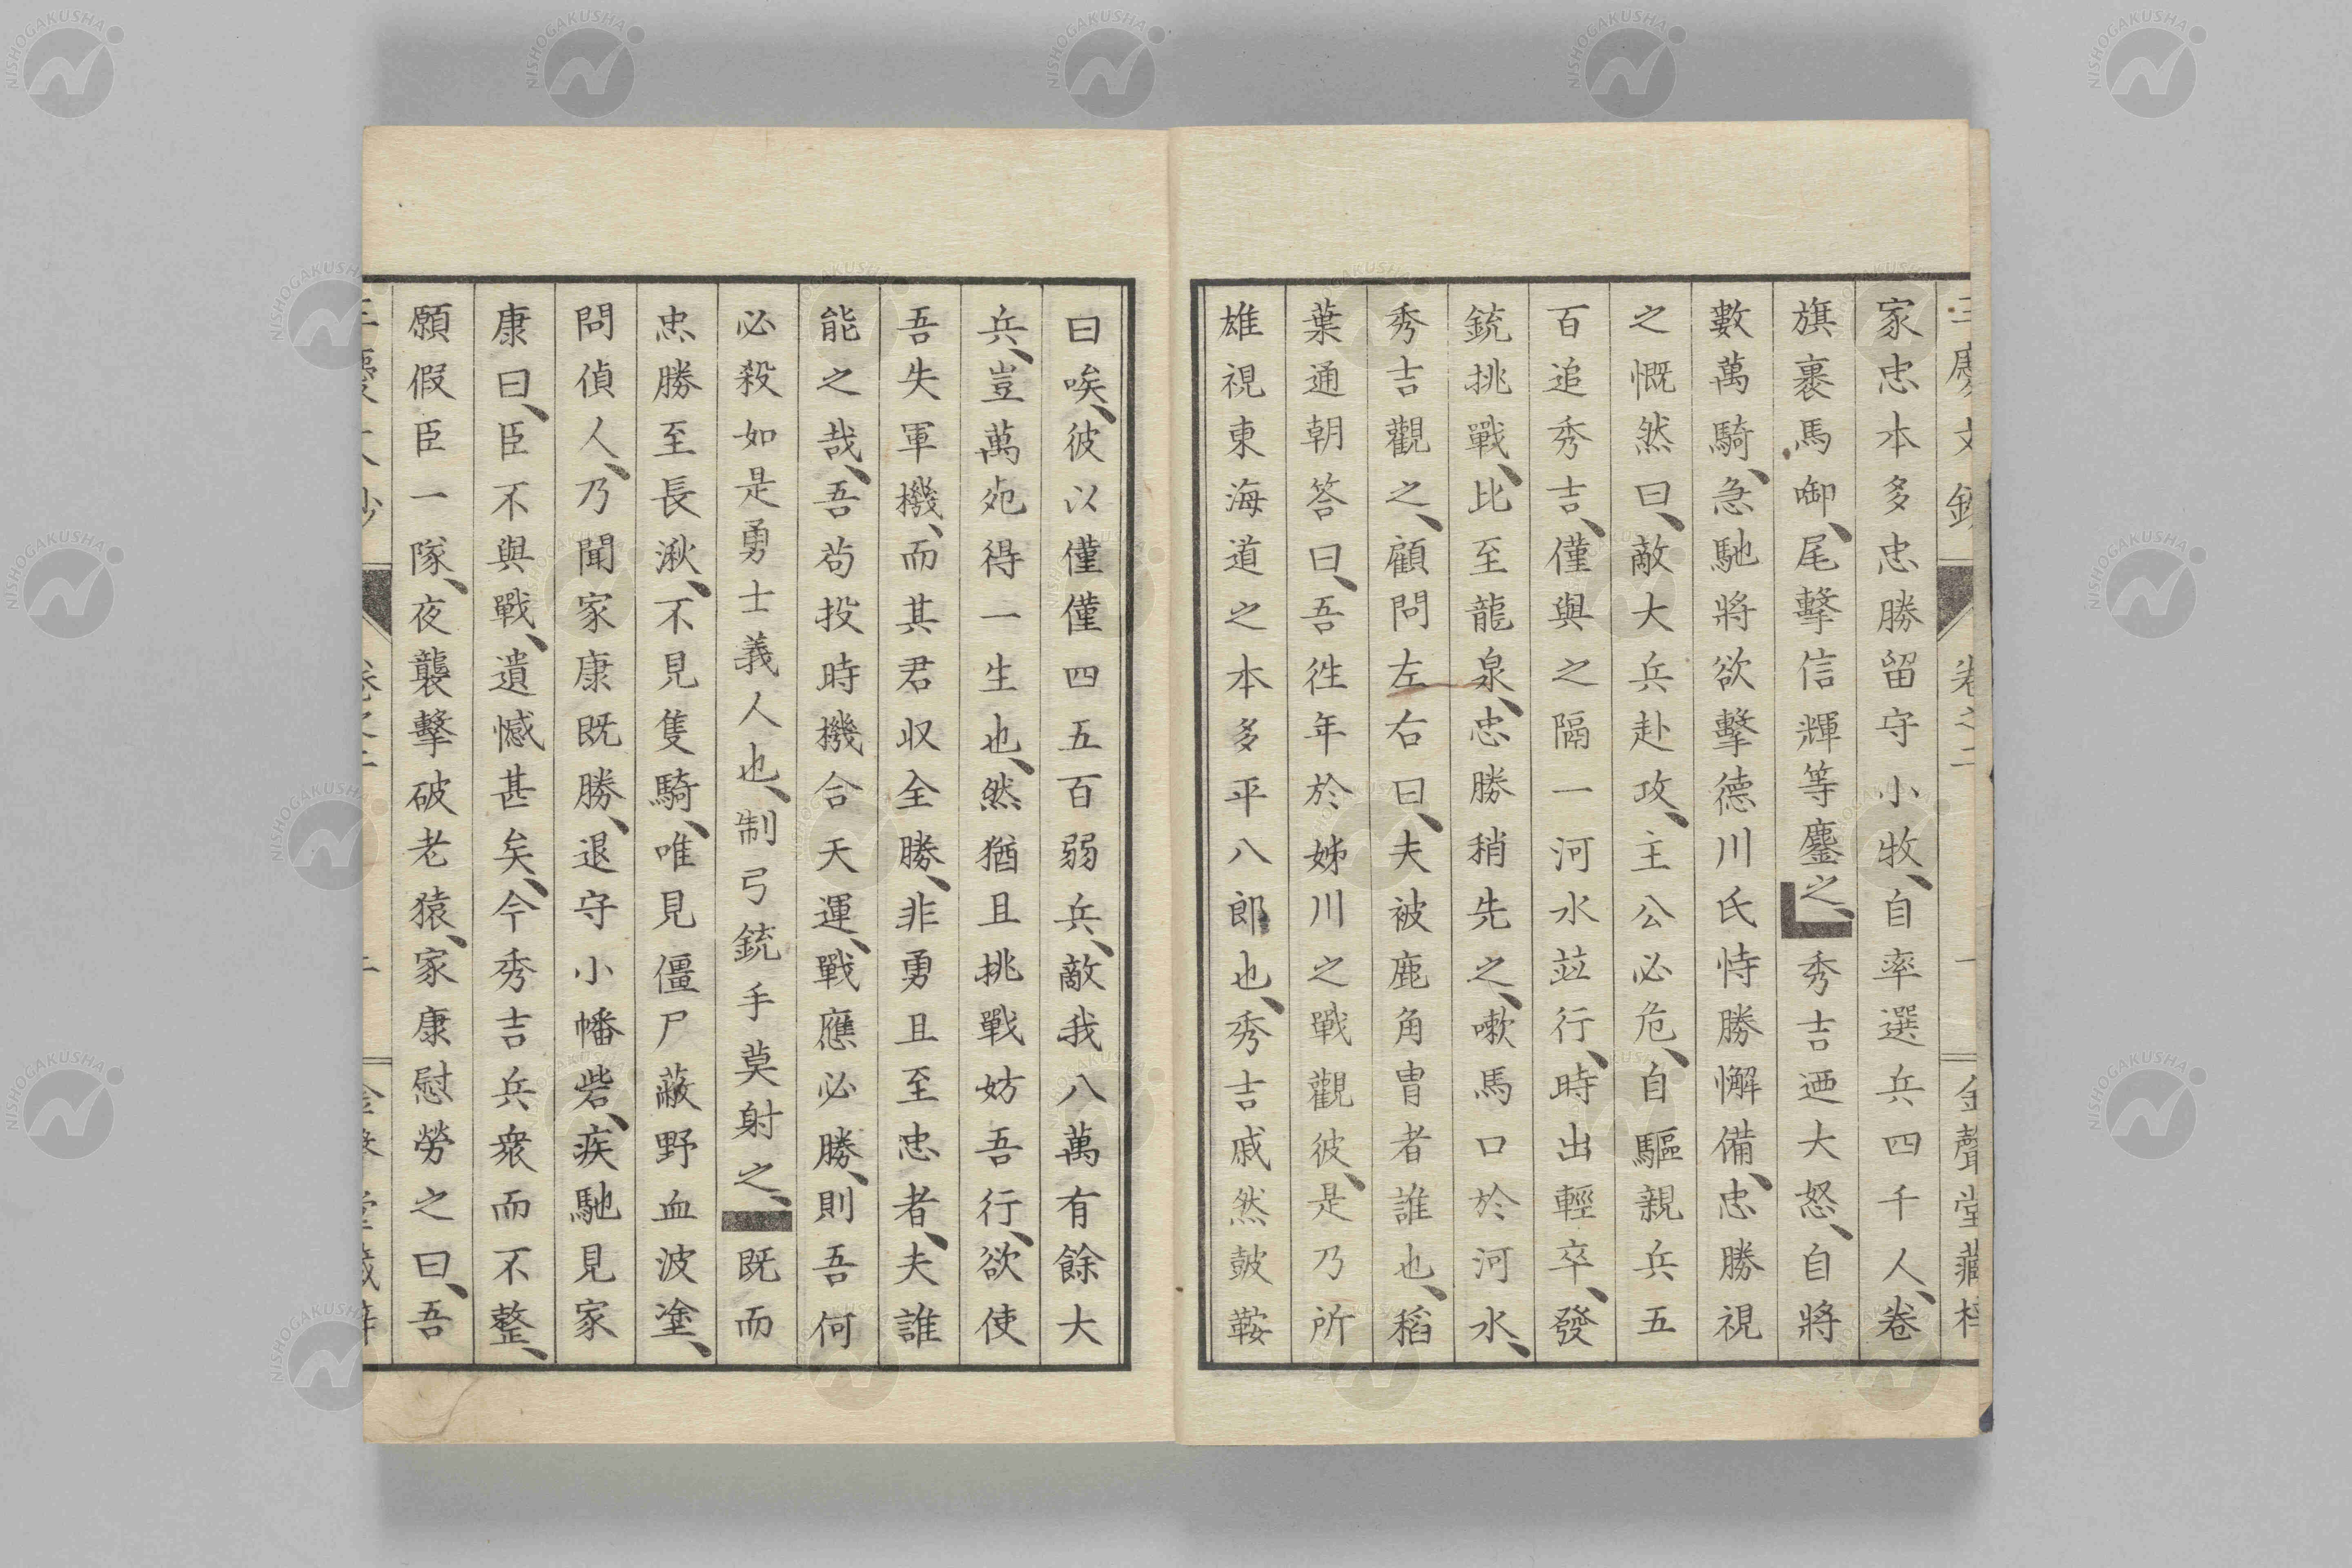 家忠本多忠勝留守小牧、自率選兵四千人、卷
旗裹馬啣、尾擊信輝等鏖之、秀吉迺大怒、自將
數萬騎、急馳將欲擊德川氏恃勝懈備、忠勝視
之慨然曰、敵大兵赴攻、主公必危、自驅親兵五
百追秀吉、僅與之隔一河水竝行、時出輕卒、發
銃挑戰、比至龍泉、忠勝稍先之、嗽馬口於河水、
秀吉觀之、顧問左右曰、夫被鹿角冑者誰也、稻
葉通朝答曰、吾徃年於姊川之戰觀彼、是乃所
雄視東海道之本多平八郎也、秀吉戚然皷鞍
曰唉、彼以僅僅四五百弱兵、敵我八萬有餘大
兵、豈萬死得一生也、然猶且挑戰妨吾行、欲使
吾失軍機、而其君収全勝、非勇且至忠者、夫誰
能之哉、吾茍投時機合天運、戰應必勝、則吾何
必殺如是勇士義人也、制弓銃手莫射之、既而
忠勝至長湫、不見隻騎、唯見僵尸蔽野血波塗、
問偵人、乃聞家康既勝、退守小幡砦、疾馳見家
康曰、臣不與戰、遺憾甚矣、今秀吉兵衆而不整、
願假臣一隊、夜襲擊破老猿、家康慰勞之曰、吾